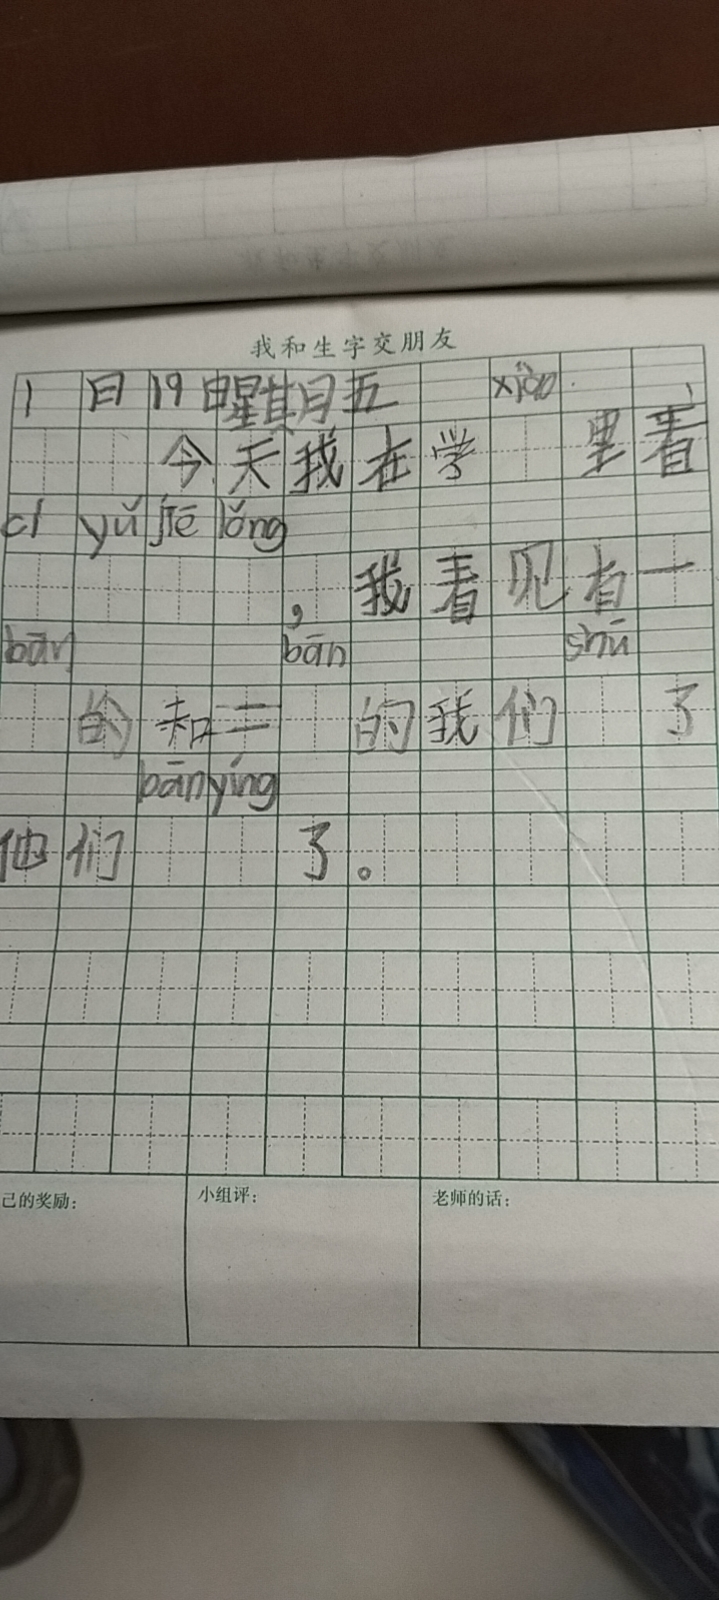 我和生字交朋友
1 日 19 星其月五 xiào
今天我在学 里看
cí yǔ jiē lóng
，我看见有一
bān bān shū
的和二 的我们 了
bān yíng
他们 了。
己的奖励： 小组评： 老师的话：